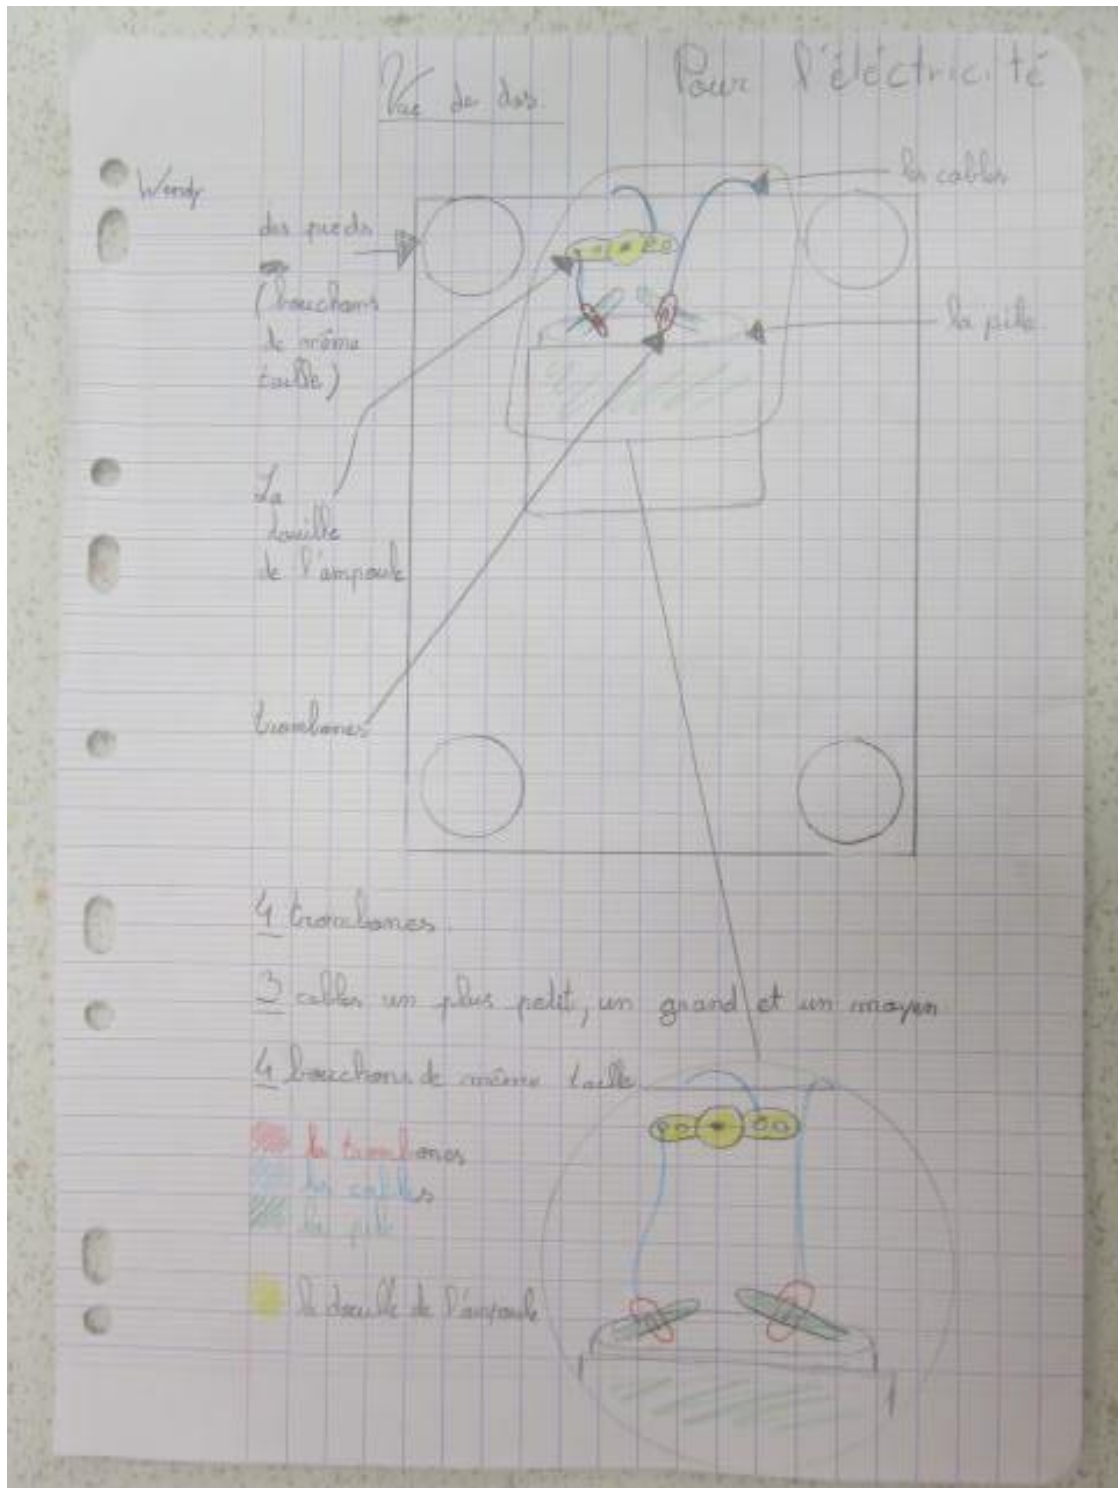 Pour l'éléctricité
Vue de dos
Wendy
les cables
des pieds
(bouchons
de même
taille)
la pile
La
douille
de l'ampoule
trombones
4 trombones
3 cables un plus petit, un grand et un moyen
4 bouchons de même taille
les trombones
les cables
la pile
la douille de l'ampoule